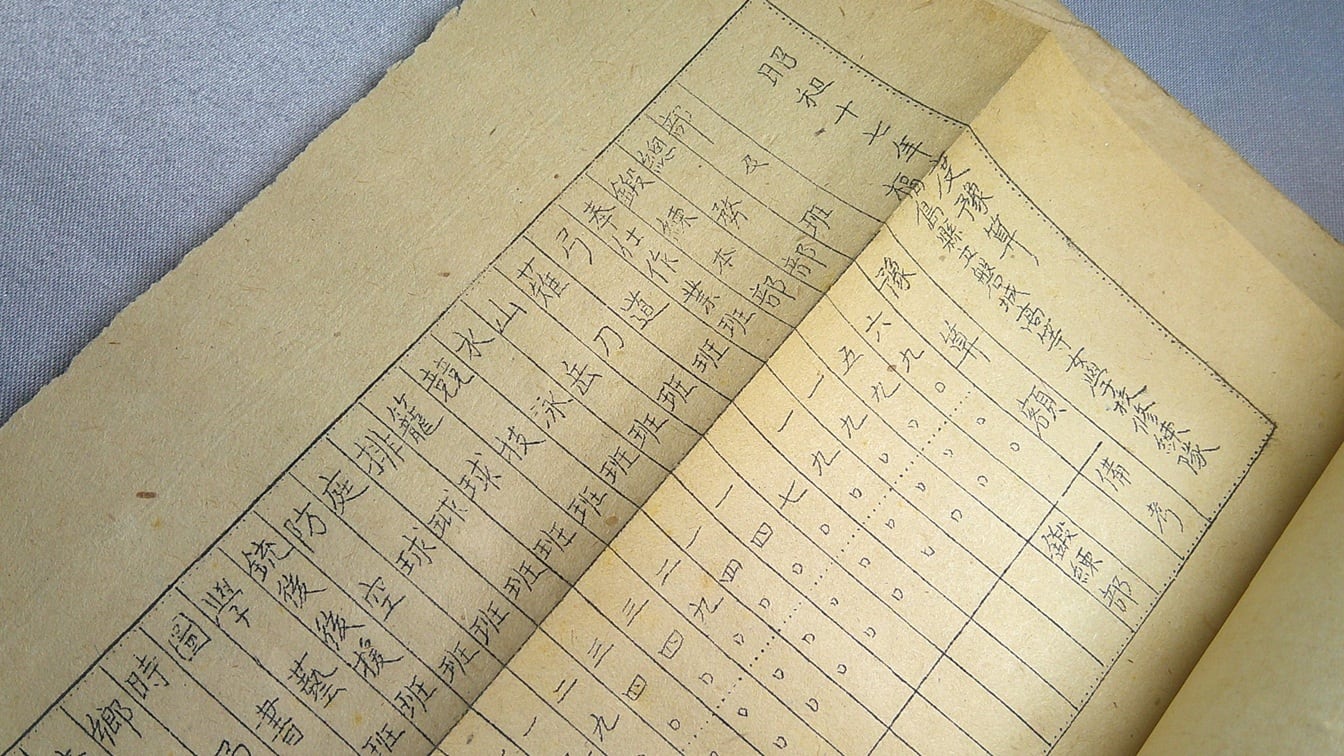 昭和十七年度豫算
福島縣立磐城高等女學校修練隊
部及班 豫算額 備考
總務部 六九〇〇〇
鍛練本部 五九〇〇〇 鍛練部
奉仕作業班 一九〇〇〇
弓道班 一九〇〇〇
薙刀班 七〇〇〇
山岳班 一四〇〇〇
水泳班 一四〇〇〇
競技班 二九〇〇〇
籠球班 三四〇〇
排球班 三四〇
庭球班 二九
防空班 一
銃後後援班
學藝班
圖書
時局
鄉